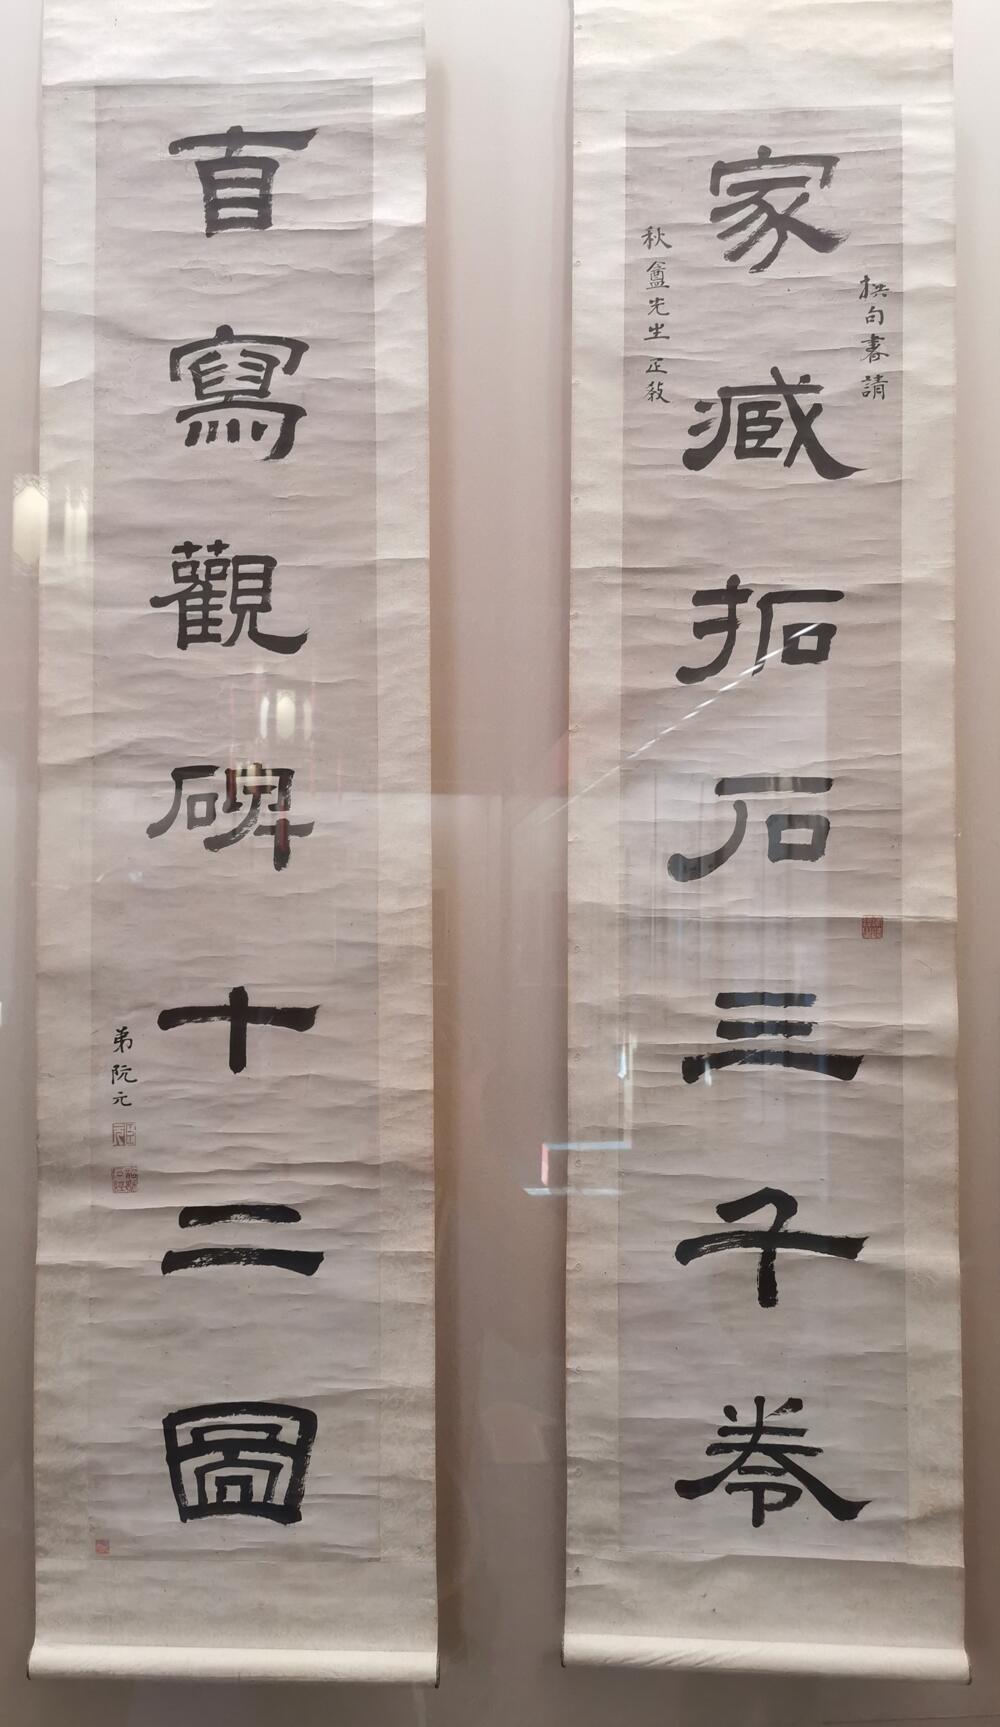 撰句書請
家臧拓石三千卷
秋盦先生正教
自寫觀碑十二圖
弟阮元